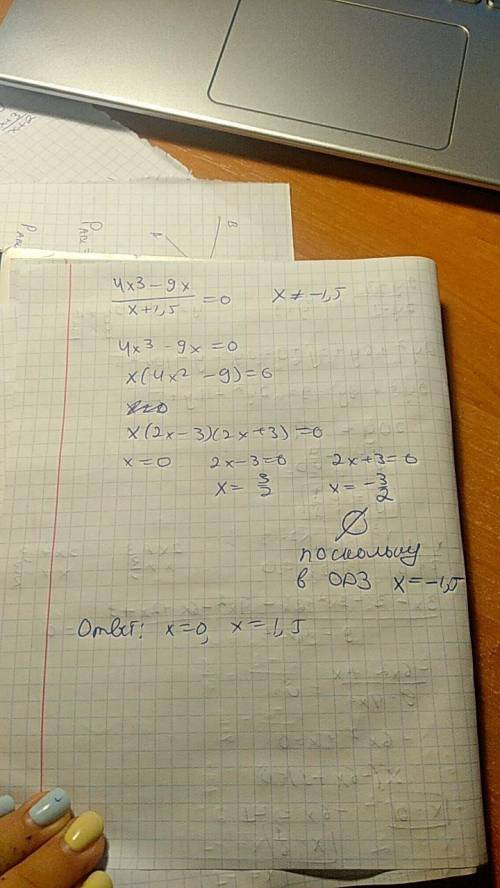 4x3 - 9x
x+1,5 =0 x ≠ -1,5
4x3 - 9x = 0
x(4x² - 9) = 0
x(2x-3)(2x+3) = 0
x = 0 2x-3=0 2x+3=0
x = 3/2 x = -3/2
∅
поскольку
в ОДЗ x = -1,5
Ответ: x=0, x = 1,5
B
A